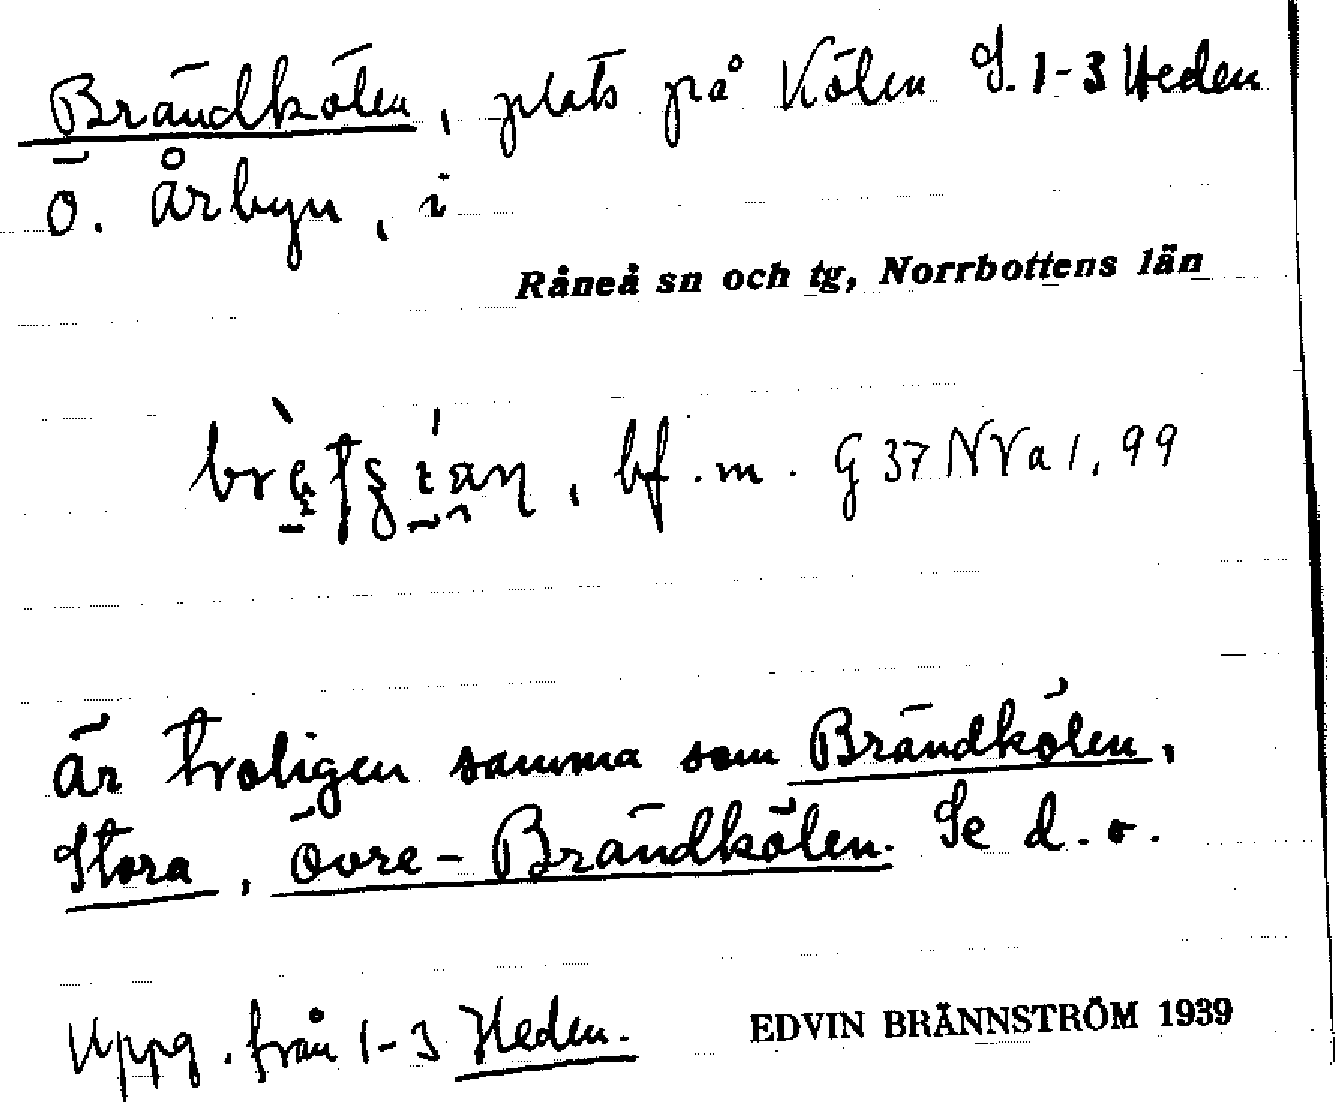 Brändkölen, plats på Kölen S. 1-3 Heden
ö. Årbyn, i
Råneå sn och tg, Norrbottens län
bf. m. G 37 NVa 1, 99
Är troligen samma som Brändkölen,
Stora, Övre-Brändkölen. Se d. o.
Uppg. från 1-3 Heden. EDVIN BRÄNNSTRÖM 1939